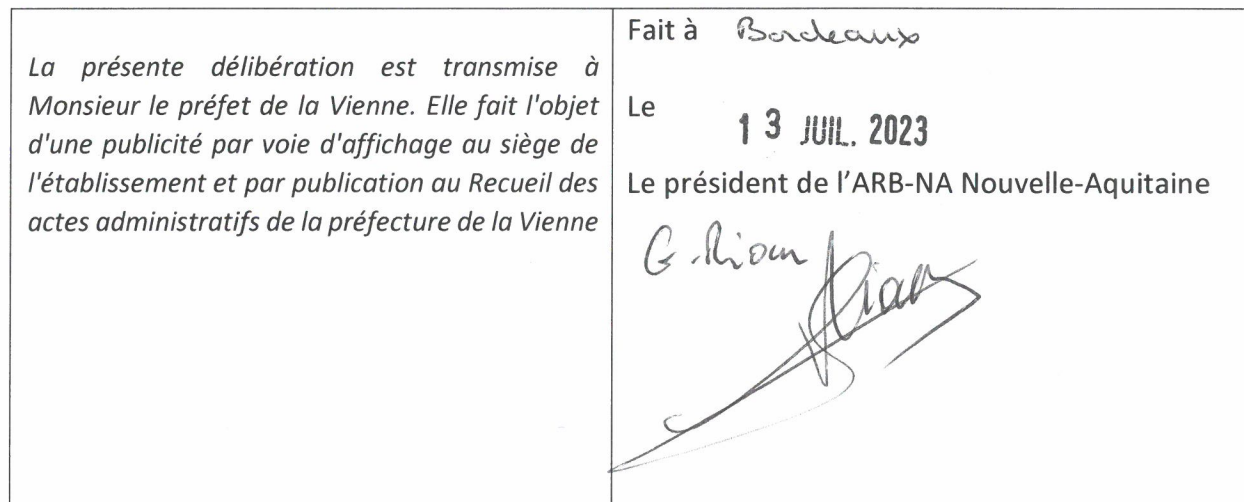 La présente délibération est transmise à
Monsieur le préfet de la Vienne. Elle fait l'objet
d'une publicité par voie d'affichage au siège de
l'établissement et par publication au Recueil des
actes administratifs de la préfecture de la Vienne
Fait à Bordeaux
Le
13 JUIL. 2023
Le président de l'ARB-NA Nouvelle-Aquitaine
G.